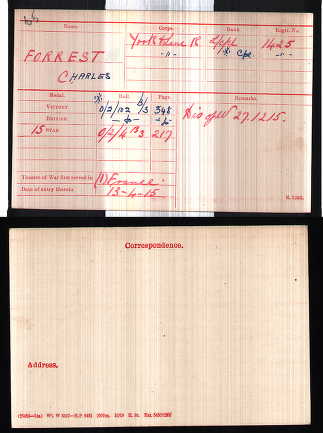 Name. Corps. Rank Regtl. No.
FORREST York & Lanc R. 1425
CHARLES -"- Cpl -"-
Medal. Roll Page Remarks.
VICTORY 0/2/102 B/3 348 D. of W 27.12.15.
BRITISH -do- -do-
15 STAR 0/2/4 B3 217
Theatre of War first served in (1) France
Date of entry therein 13-4-15
K. 1380.
Correspondence.
Address.